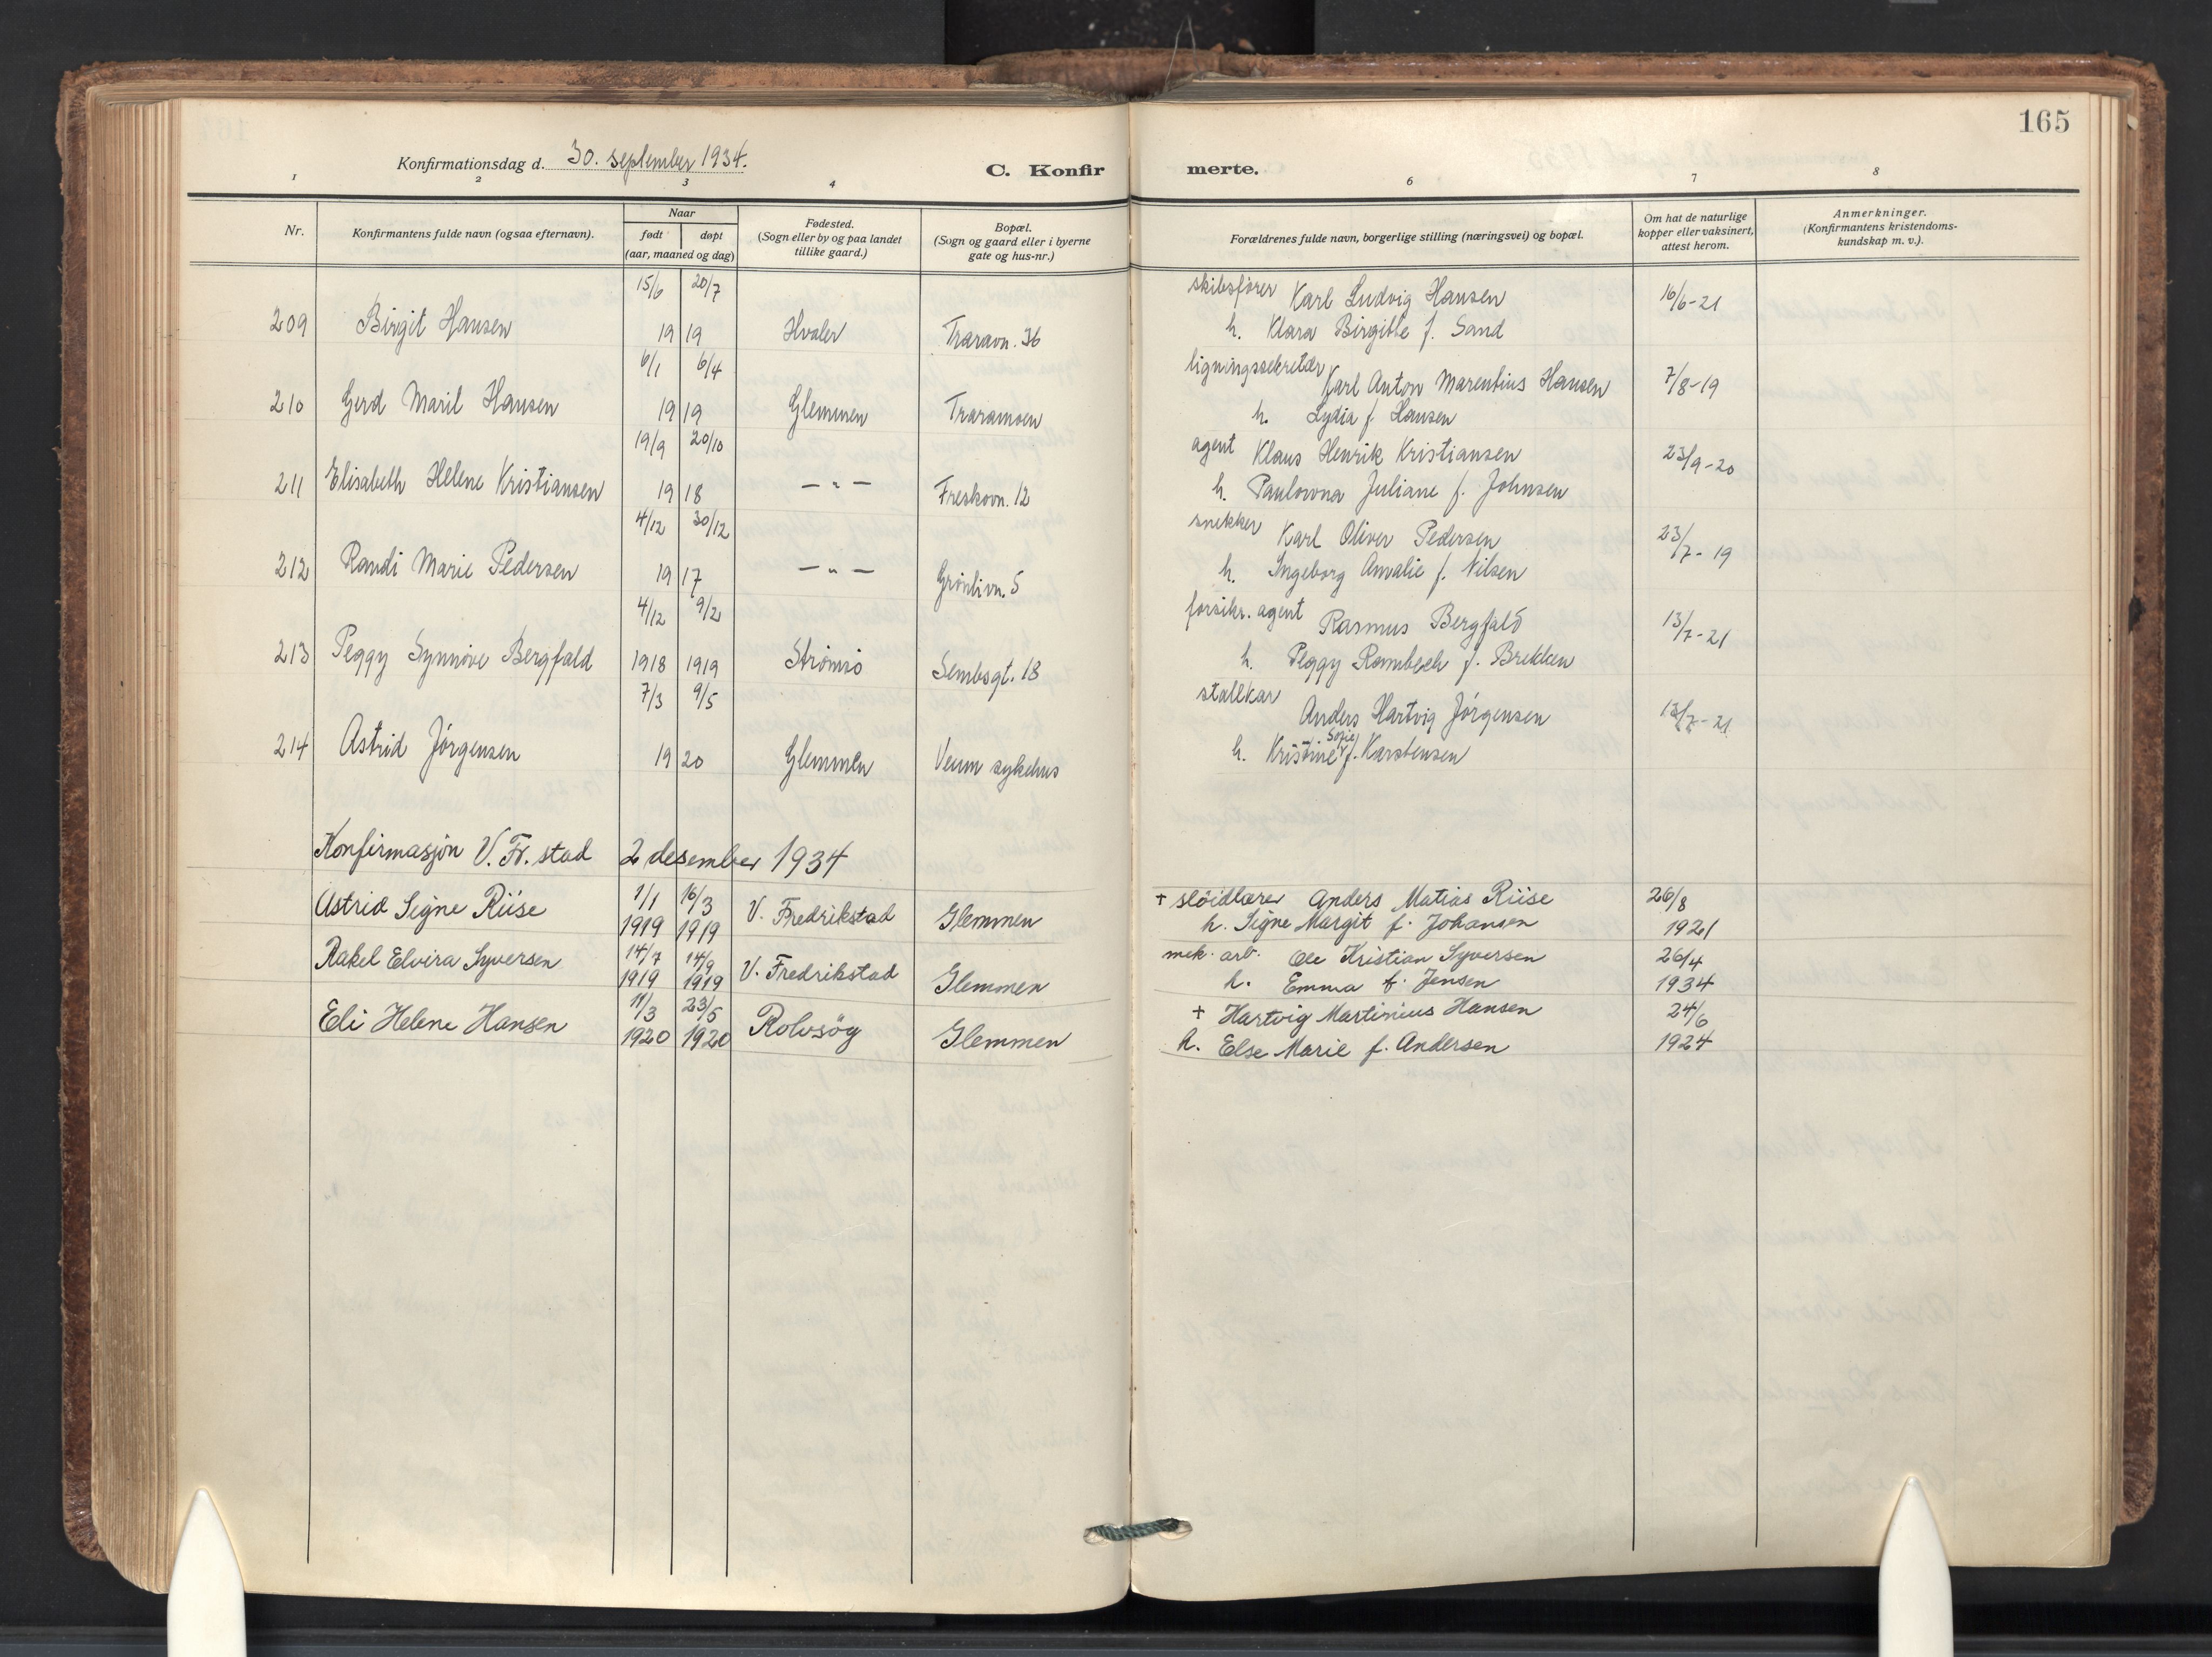 165
Konfirmationsdag d. 30. september 1934.
C. Konfir merte.
1 2 3 4 6 7 8
Nr.
Konfirmantens fulde navn (ogsaa efternavn).
Naar
født døpt
(aar, maaned og dag)
Fødested.
(Sogn eller by og paa landet
tillike gaard.)
Bopæl.
(Sogn og gaard eller i byerne
gate og hus-nr.)
Forældrenes fulde navn, borgerlige stilling (næringsvei) og bopæl.
Om hat de naturlige
kopper eller vaksinert,
attest herom.
Anmerkninger.
(Konfirmantens kristendoms-
kundskap m. v.).
15/6 20/7 skibsfører Karl Ludvig Hansen 16/6-21
209 Birgit Hansen 19 19 Hvaler Traravn. 36 h. Klara Birgitte f. Sand
6/1 6/4 ligningssekretær Karl Anton Marentius Hansen 7/8-19
210 Gerd Maril Hansen 19 19 Glemmen Traramoen h. Lydia f Hansen
19/9 20/10 agent Klaus Henrik Kristiansen 23/9-20
211 Elisabeth Helene Kristiansen 19 18 — " — Freskovn. 12 h. Paulowna Juliane f. Johnsen
4/12 30/12 snekker Karl Oliver Pedersen 23/7-19
212 Randi Marie Pedersen 19 17 — " — Grønlivn. 5 h. Ingeborg Amalie f. Nilsen
4/12 9/2 forsikr. agent Rasmus Bergfald 13/7-21
213 Peggy Synnøve Bergfald 1918 1919 Strømsø Sembsgt. 18 h. Peggy Rambech f. Brekken
7/3 9/5 stallkar Anders Hartvig Jørgensen 13/7-21
214 Astrid Jørgensen 19 20 Glemmen Veum sykehus h. Kristine Sofie f. Karstensen
Konfirmasjon V. Fr. stad 2 desember 1934
Astrid Signe Riise 1/1 16/3 V. Fredrikstad Glemmen + sløidlærer Anders Matias Riise 26/8
1919 1919 h. Signe Margit f. Johansen 1921
Rakel Elvira Syversen 14/7 14/9 V. Fredrikstad Glemmen mek. arb. Ole Kristian Syversen 26/4
1919 1919 h. Emma f. Jensen 1934
Eli Helene Hansen 11/3 23/5 Rolvsøy Glemmen + Hartvig Martinius Hansen 24/6
1920 1920 h. Else Marie f. Andersen 1924